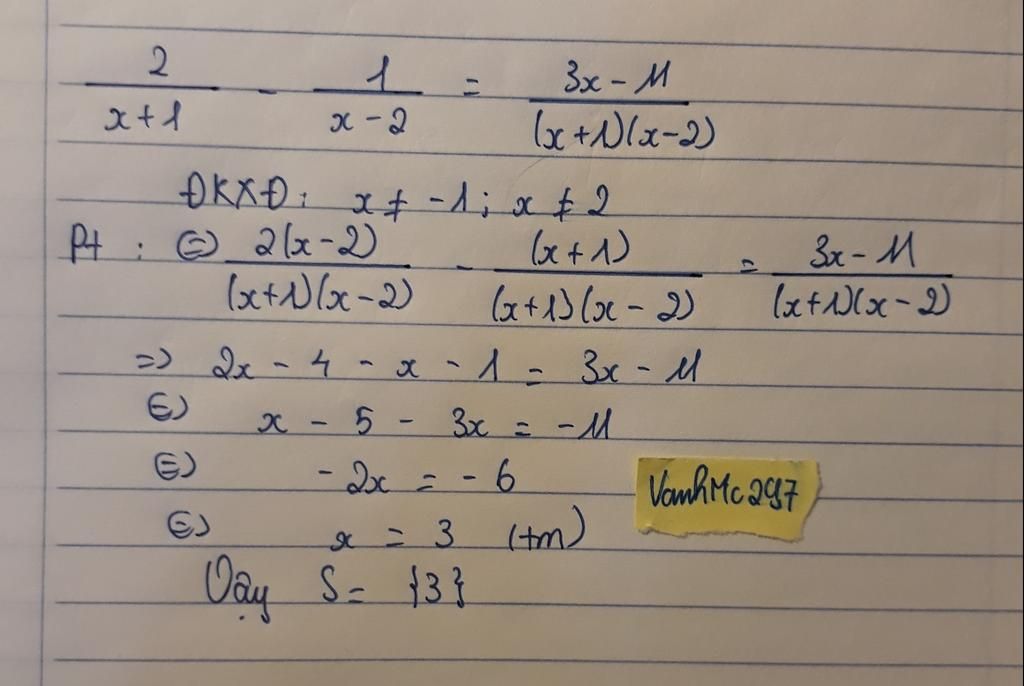 2/(x+1) - 1/(x-2) = (3x-11)/((x+1)(x-2))
ĐKXĐ: x ≠ -1; x ≠ 2
Pt: ⇔ 2(x-2)/((x+1)(x-2)) - (x+1)/((x+1)(x-2)) = (3x-11)/((x+1)(x-2))
=> 2x - 4 - x - 1 = 3x - 11
⇔ x - 5 - 3x = -11
⇔ -2x = -6
⇔ x = 3 (tm)
Vậy S = {3}
VanhMc297